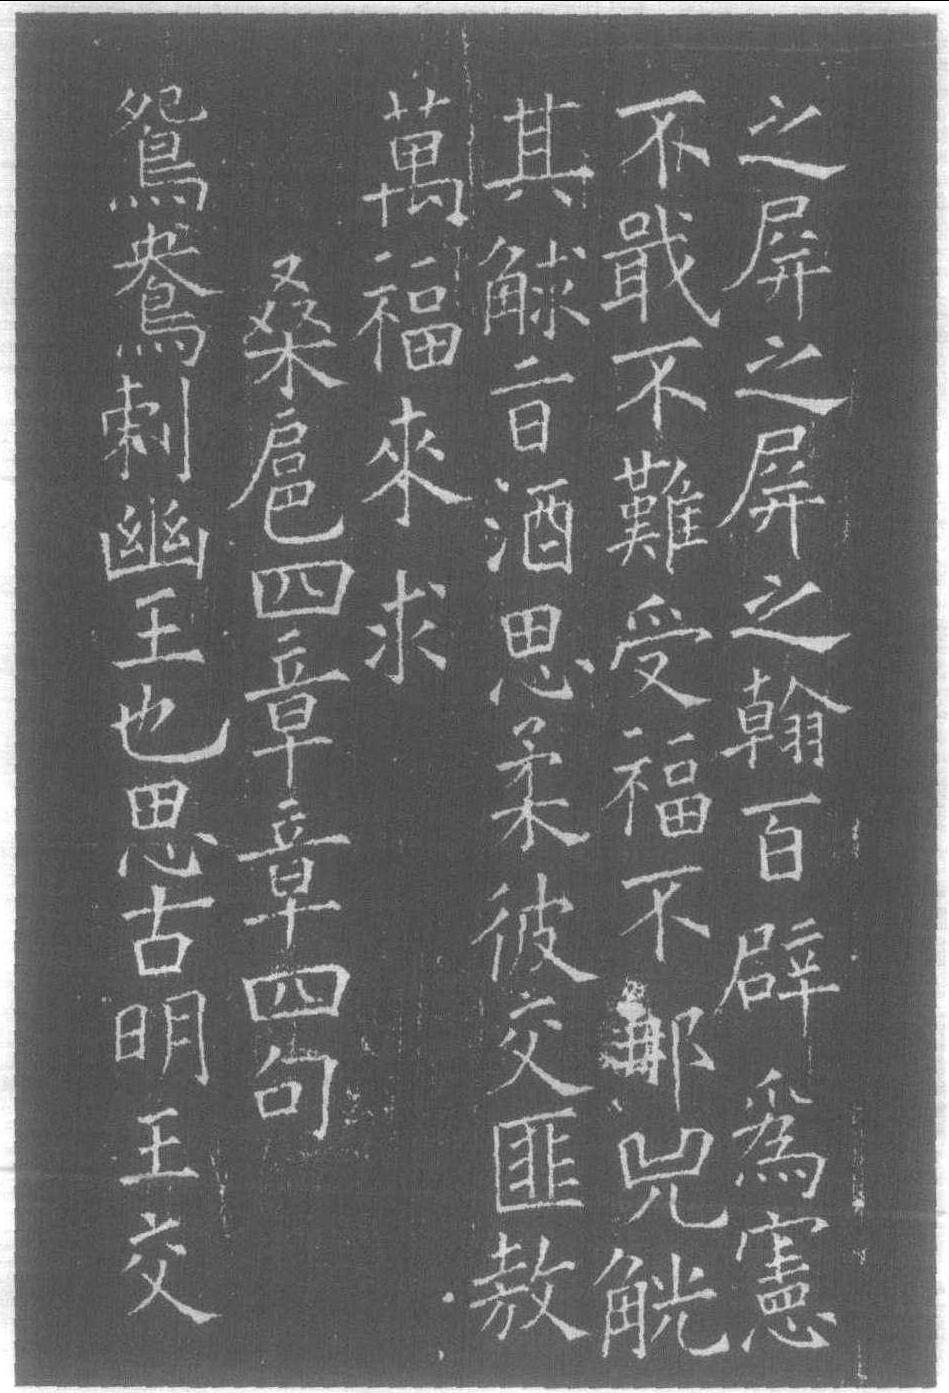 之屏之屏之翰百辟爲憲
不戢不難受福不那兕觥
其觩旨酒思柔彼交匪敖
萬福來求
桑扈四章章四句
鴛鴦刺幽王也思古明王交